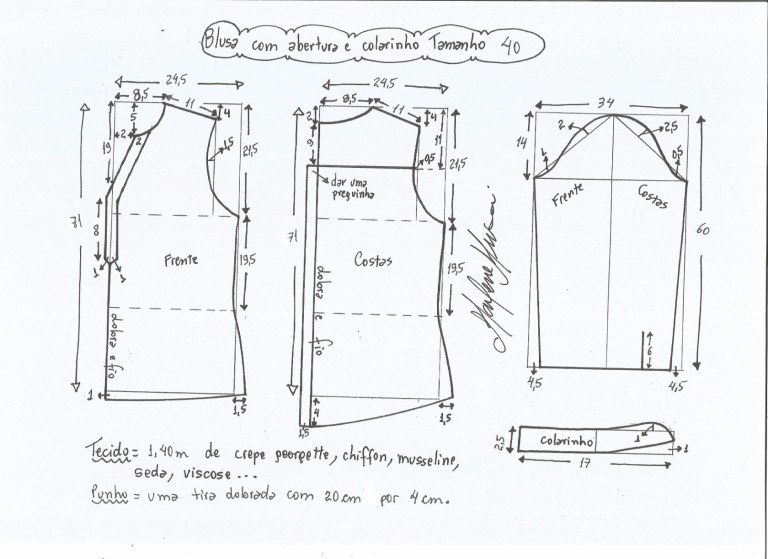 Blusa com abertura e colarinho Tamanho 40
24,5
8,5
11
4
5
2
2
19
1,5
21,5
71
8
1 1
Frente
19,5
dobra e fio
1
1,5
24,5
8,5
11
4
2
9
11
0,5
21,5
dar uma
preguinha
71
Costas
19,5
dobra e fio
4
1,5
1,5
34
14
2
2,5
1
0,5
Frente
Costas
60
6
4,5
4,5
Marlene Mukai
2,5
Colarinho
1
1
17
Tecido = 1,40m de crepe georgette, chiffon, musseline,
seda, viscose...
Punho = uma tira dobrada com 20cm por 4cm.